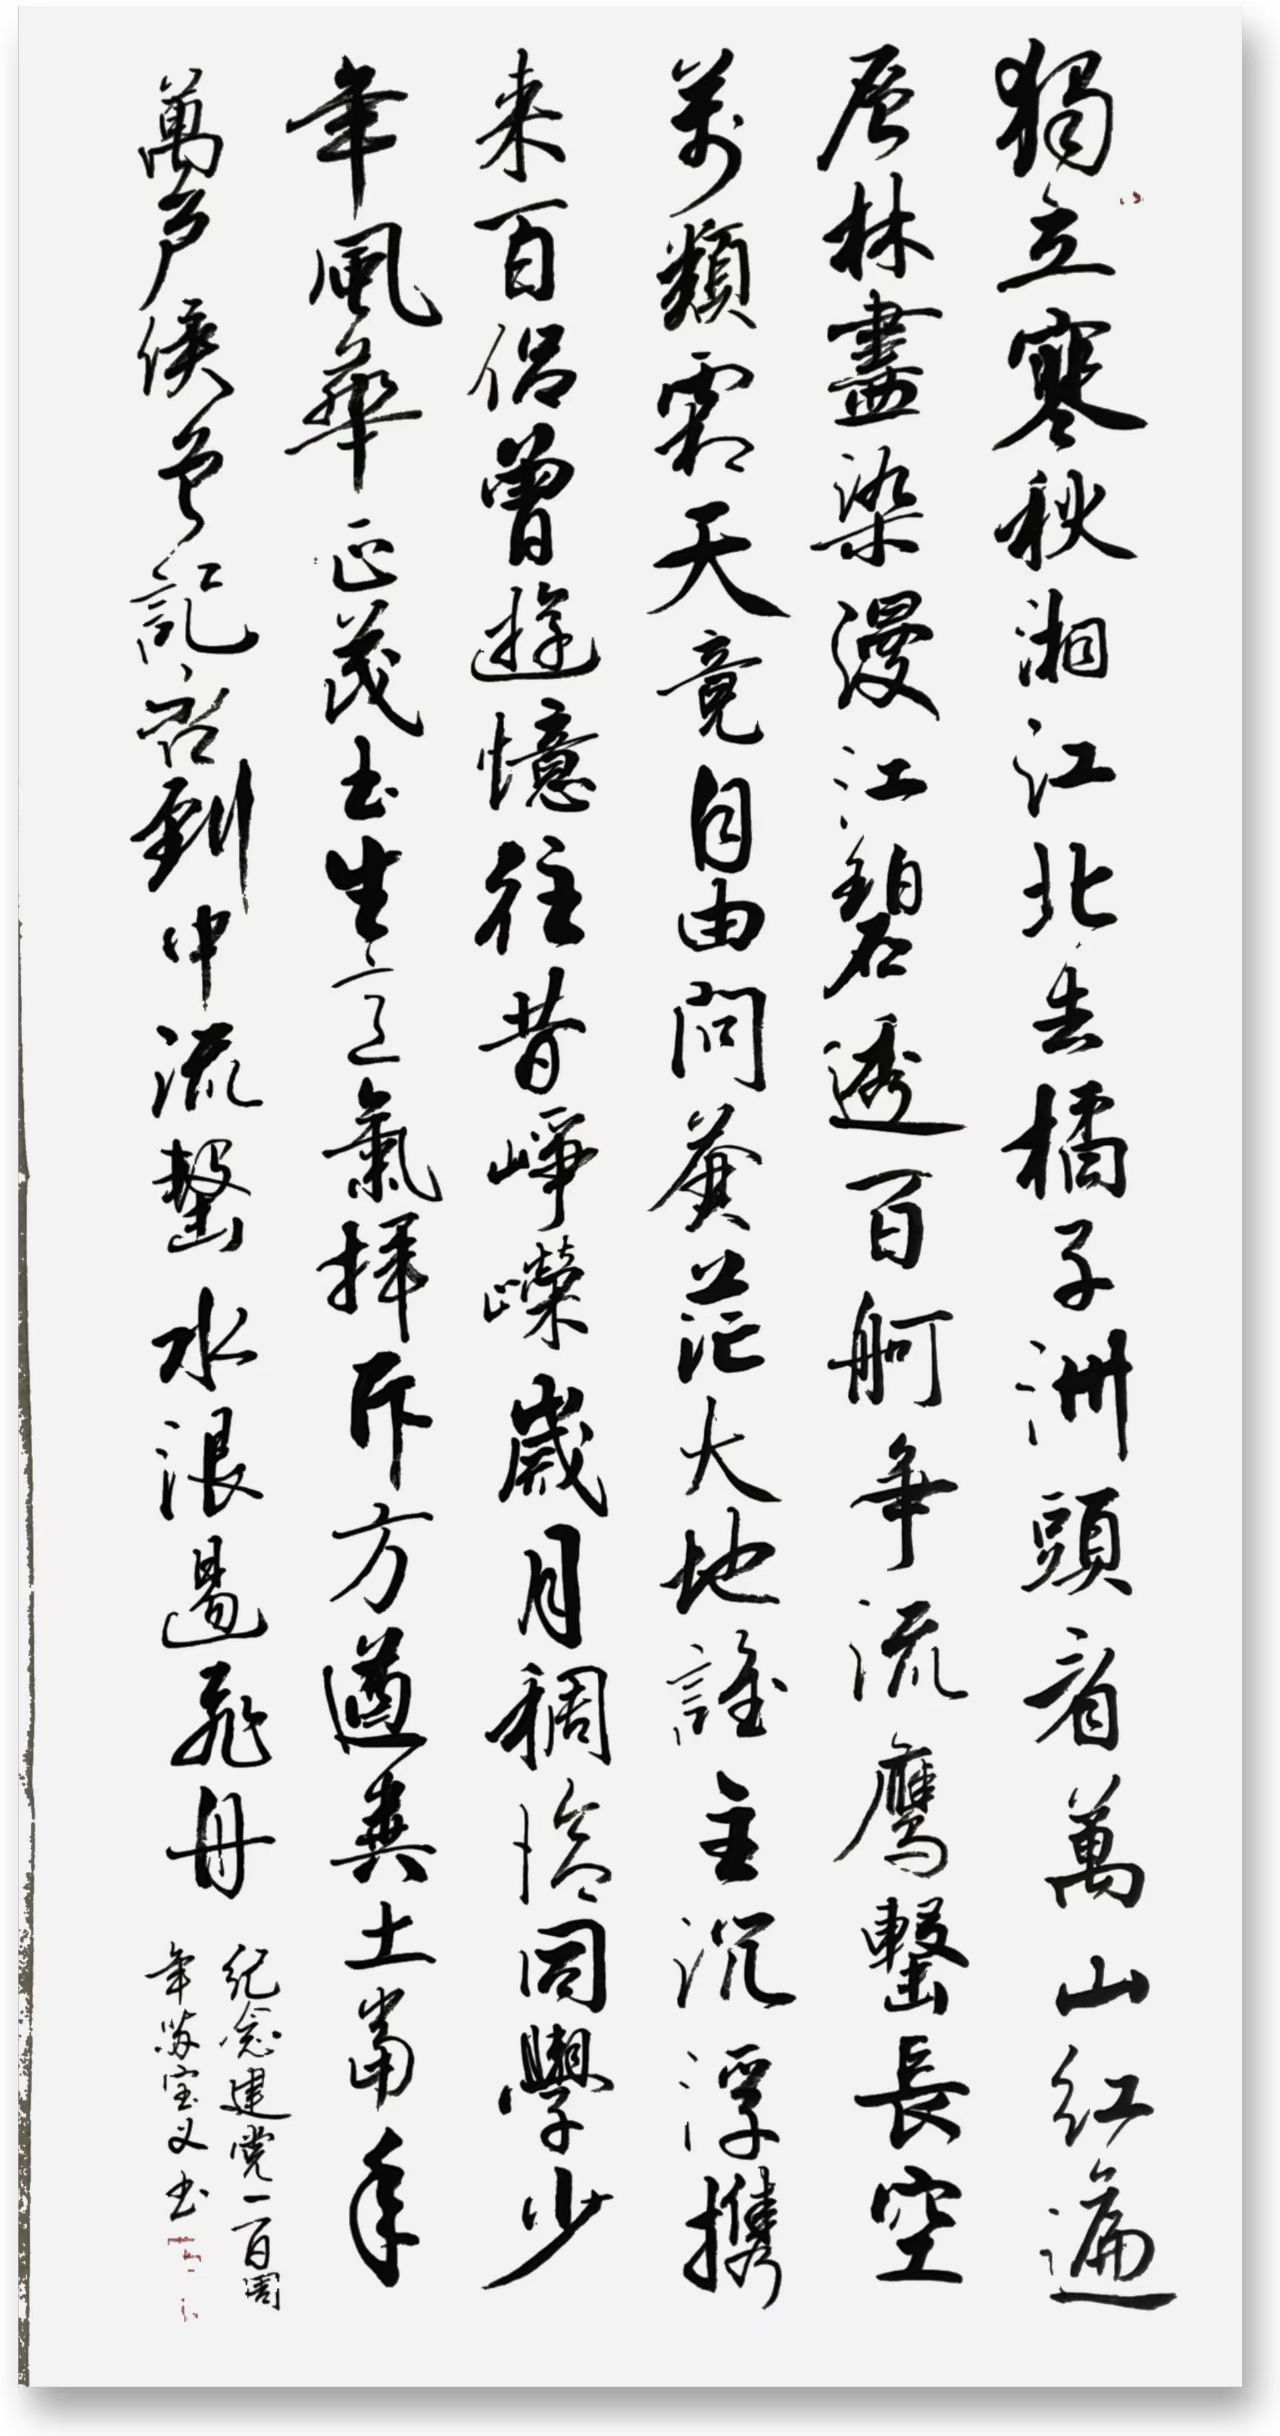 獨立寒秋湘江北去橘子洲頭看萬山紅遍
层林盡染漫江碧透百舸争流鷹擊長空
萬類霜天竞自由問蒼茫大地誰主沉浮携
来百侣曾遊憶往昔崢嶸歲月稠恰同學少
年風華正茂书生意氣揮斥方遒糞土當年
萬户侯曾記否到中流擊水浪遏飛舟
纪念建党一百周
年苏宝义书